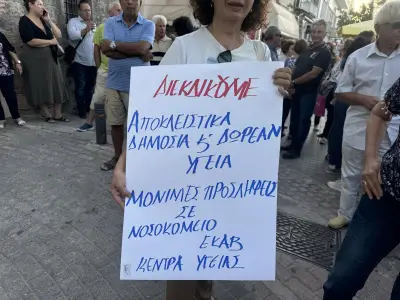 ΔΙΕΚΔΙΚΟΥΜΕ
ΑΠΟΚΛΕΙΣΤΙΚΑ
ΔΗΜΟΣΙΑ Κ' ΔΩΡΕΑΝ
ΥΓΕΙΑ
ΜΟΝΙΜΕΣ ΠΡΟΣΛΗΨΕΙΣ
ΣΕ
ΝΟΣΟΚΟΜΕΙΟ
ΕΚΑΒ
ΚΕΝΤΡΑ ΥΓΕΙΑΣ